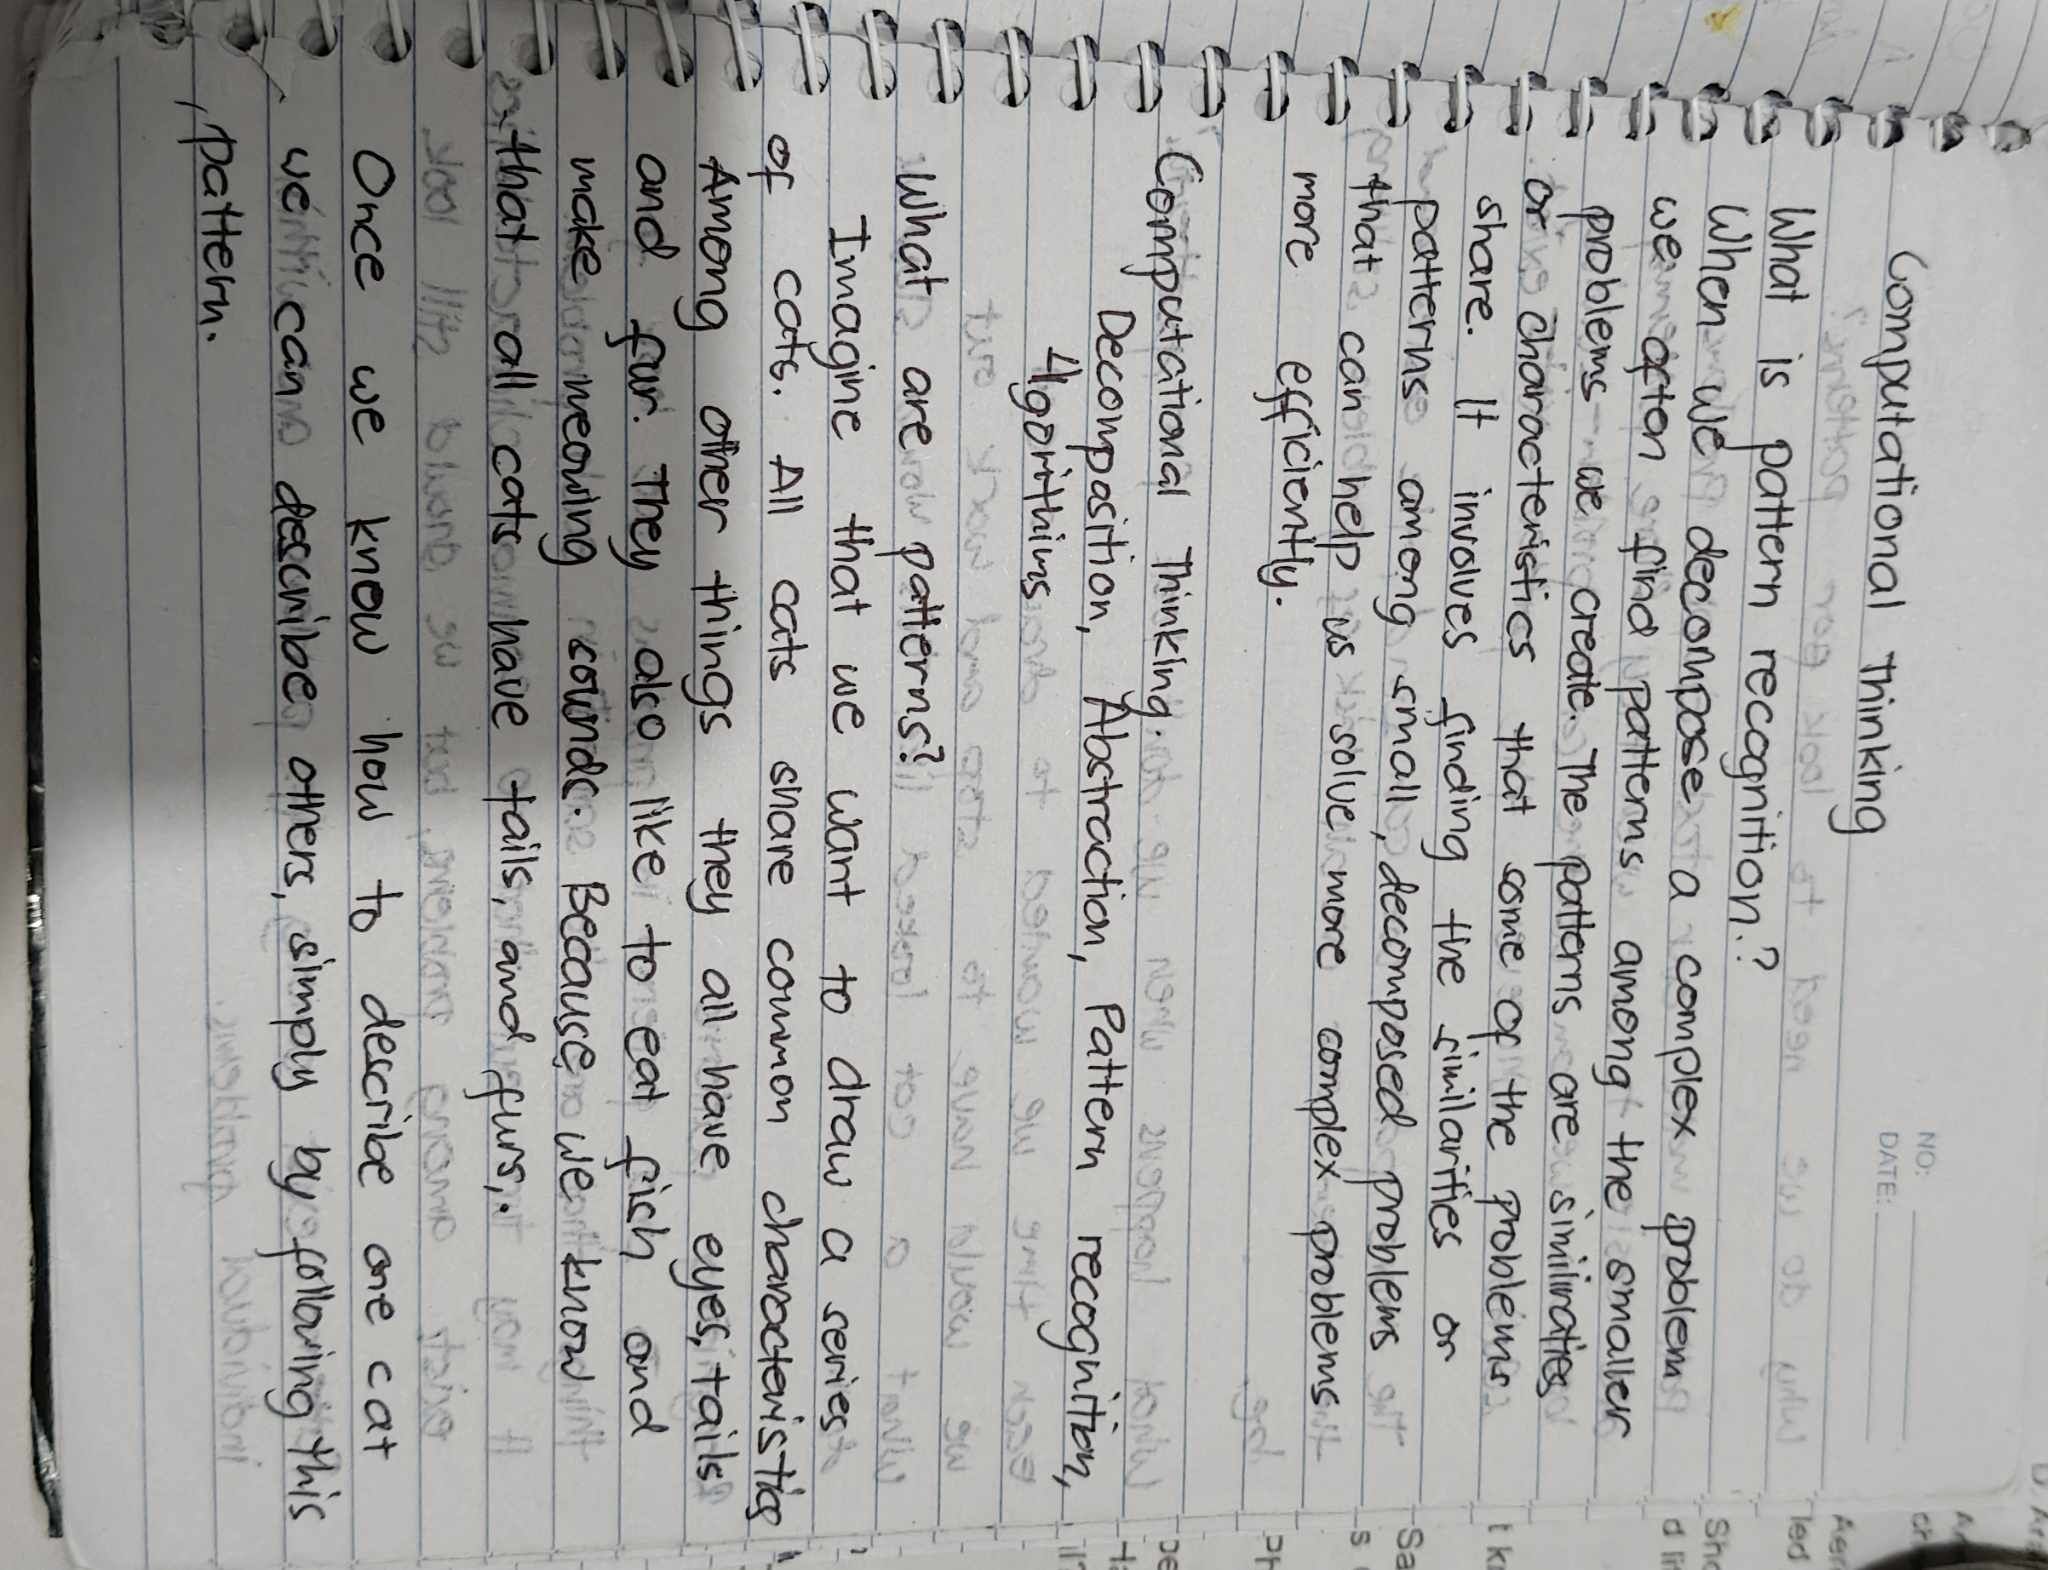 NO:
DATE:
Computational Thinking
What is pattern recognition?
When we decompose a complex problem
we often find patterns among the smaller
problems we create. The patterns are similiraties
or characteristics that some of the problems
share. It involves finding the similarities or
patterns among small, decomposed problems
that can help us solve more complex problems
more efficiently.
Computational Thinking.
Decomposition, Abstraction, Pattern recognition,
Algorithims
What are patterns?
Imagine that we want to draw a series
of cats. All cats share common characteristics
Among other things they all have eyes, tails
and fur. They also like to eat fish and
make meowing sounds. Because we know
that all cats have tails, and furs,.
Once we know how to describe one cat
we can describe others, simply by following this
pattern.